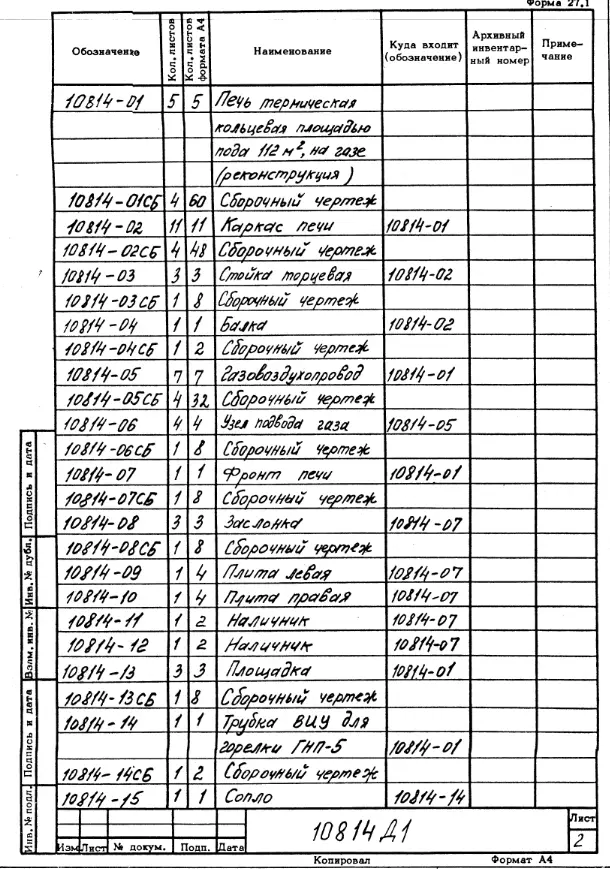 Форма 27.1
Обозначение Кол. листов Кол. листов формата А4 Наименование Куда входит (обозначение) Архивный инвентар-ный номер Приме-чание
10814-01 5 5 Печь термическая
кольцевая площадью
пода 112 м², на газе
(реконструкция)
10814-01СБ 4 60 Сборочный чертеж
10814-02 11 11 Каркас печи 10814-01
10814-02СБ 4 48 Сборочный чертеж
10814-03 3 3 Стойка торцевая 10814-02
10814-03СБ 1 8 Сборочный чертеж
10814-04 1 1 Балка 10814-02
10814-04СБ 1 2 Сборочный чертеж
10814-05 7 7 Газовоздухопровод 10814-01
10814-05СБ 4 32 Сборочный чертеж
10814-06 4 4 Узел подвода газа 10814-05
10814-06СБ 1 8 Сборочный чертеж
10814-07 1 1 Фронт печи 10814-01
10814-07СБ 1 8 Сборочный чертеж
10814-08 3 3 Заслонка 10814-07
10814-08СБ 1 8 Сборочный чертеж
10814-09 1 4 Плита левая 10814-07
10814-10 1 4 Плита правая 10814-07
10814-11 1 2 Наличник 10814-07
10814-12 1 2 Наличник 10814-07
10814-13 3 3 Площадка 10814-01
10814-13СБ 1 8 Сборочный чертеж
10814-14 1 1 Трубка ВИУ для
горелки ГНП-5 10814-01
10814-14СБ 1 2 Сборочный чертеж
10814-15 1 1 Сопло 10814-14
Подпись и дата
Инв. № дубл.
Взам. инв. №
Подпись и дата
Инв. № подл.
Изм Лист № докум. Подп. Дата
10814Д1
Лист
2
Копировал Формат А4